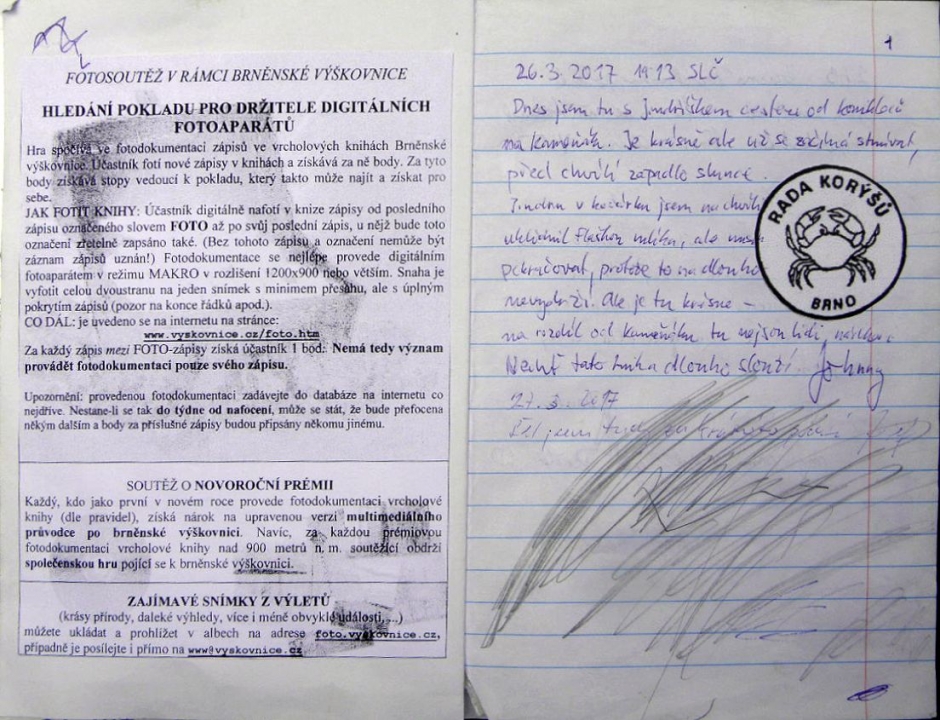 FOTOSOUTĚŽ V RÁMCI BRNĚNSKÉ VÝŠKOVNICE
HLEDÁNÍ POKLADU PRO DRŽITELE DIGITÁLNÍCH
FOTOAPARÁTŮ
Hra spočívá ve fotodokumentaci zápisů ve vrcholových knihách Brněnské
výškovnice. Účastník fotí nové zápisy v knihách a získává za ně body. Za tyto
body získává stopy vedoucí k pokladu, který takto může najít a získat pro
sebe.
JAK FOTIT KNIHY: Účastník digitálně nafotí v knize zápisy od posledního
zápisu označeného slovem FOTO až po svůj poslední zápis, u nějž bude toto
označení zřetelně zapsáno také. (Bez tohoto zápisu a označení nemůže být
záznam zápisů uznán!) Fotodokumentace se nejlépe provede digitálním
fotoaparátem v režimu MAKRO v rozlišení 1200x900 nebo větším. Snaha je
vyfotit celou dvoustranu na jeden snímek s minimem přesahu, ale s úplným
pokrytím zápisů (pozor na konce řádků apod.).
CO DÁL: je uvedeno se na internetu na stránce:
www.vyskovnice.cz/foto.htm
Za každý zápis mezi FOTO-zápisy získá účastník 1 bod. Nemá tedy význam
provádět fotodokumentaci pouze svého zápisu.
Upozornění: provedenou fotodokumentaci zadávejte do databáze na internetu co
nejdříve. Nestane-li se tak do týdne od nafocení, může se stát, že bude přefocena
někým dalším a body za příslušné zápisy budou připsány někomu jinému.
SOUTĚŽ O NOVOROČNÍ PRÉMII
Každý, kdo jako první v novém roce provede fotodokumentaci vrcholové
knihy (dle pravidel), získá nárok na upravenou verzi multimediálního
průvodce po brněnské výškovnici. Navíc, za každou prémiovou
fotodokumentaci vrcholové knihy nad 900 metrů n. m. soutěžící obdrží
společenskou hru pojící se k brněnské výškovnici.
ZAJÍMAVÉ SNÍMKY Z VÝLETŮ
(krásy přírody, daleké výhledy, více i méně obvyklé události,...)
můžete ukládat a prohlížet v albech na adrese foto.vyskovnice.cz,
případně je posílejte i přímo na www@vyskovnice.cz
1
26.3.2017 19:13 SLČ
Dnes jsem tu s Jindříškem cestou od
na Kameňák. Je krásně ale už se začíná stmívat,
před chvílí zapadlo slunce.
Jindru v kočárku jsem na chvíli
uklidnil flaškou mlíka, ale
pokračovat, protože to na dlouho
nevydrží. Ale je tu krásně –
na rozdíl od Kameňáku tu nejsou lidi,
Nechť tato tužka dlouho slouží. Johnny
RADA KORÝŠŮ
BRNO
27.3.2017
jsem